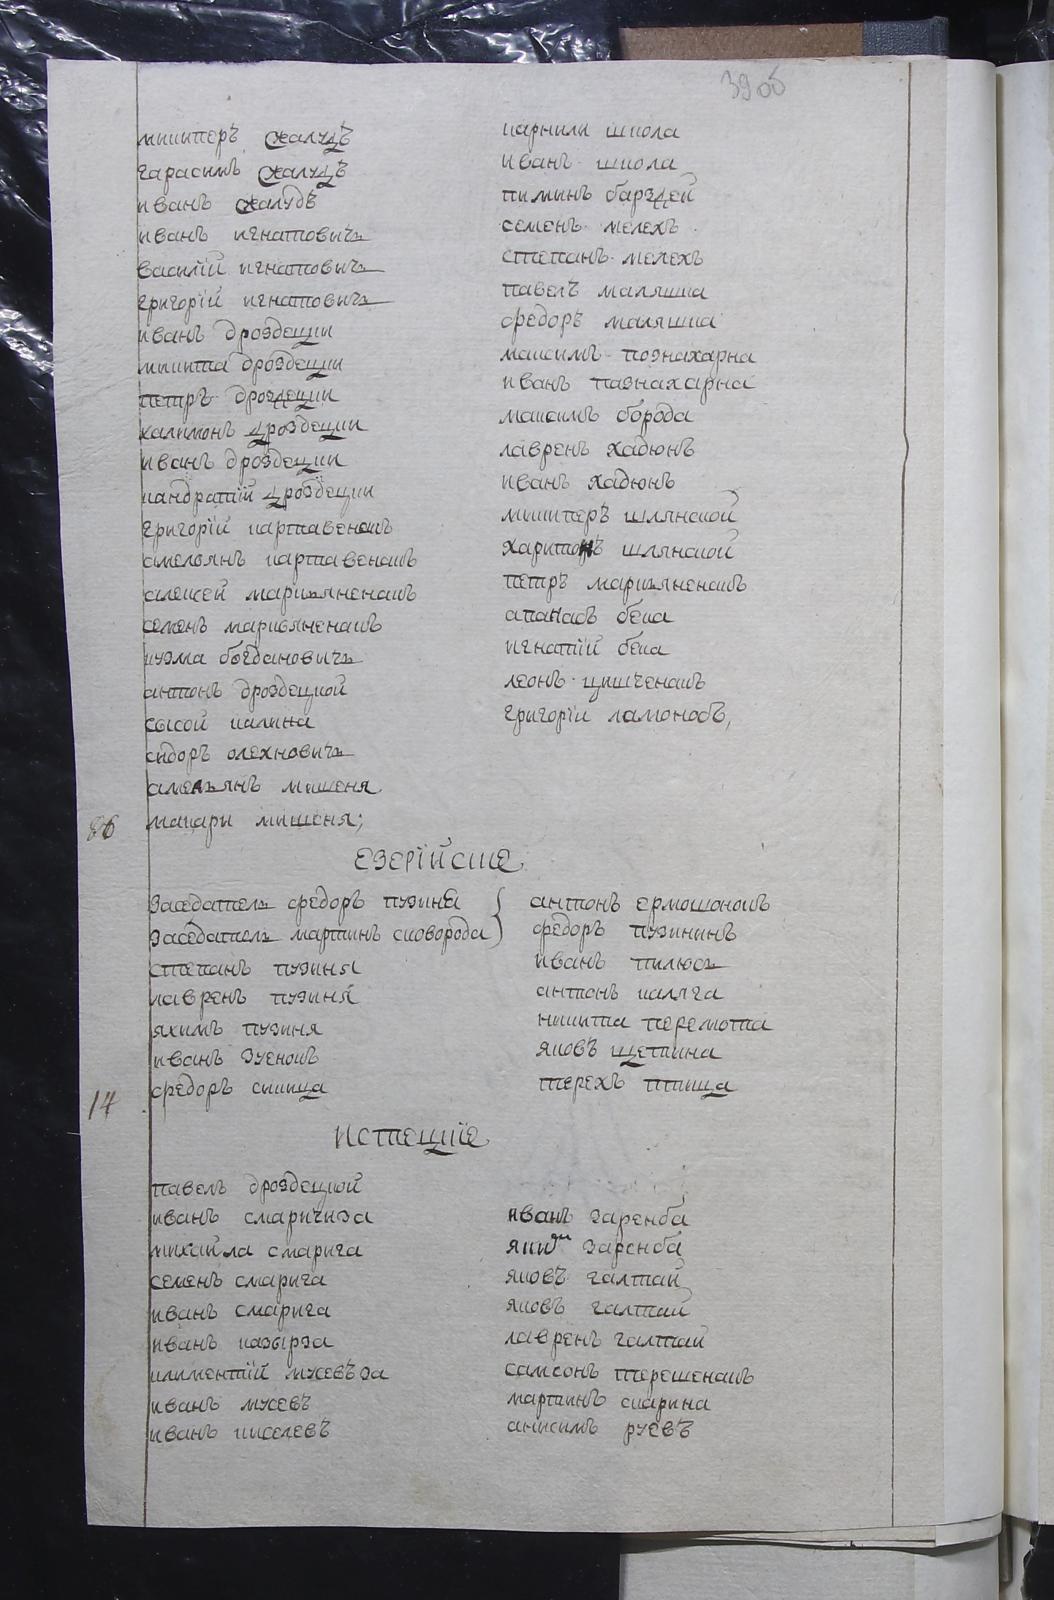 39 об
микитеръ скалудъ
гарасимъ скалудъ
иванъ скалудъ
иванъ игнатовичъ
василій игнатовичъ
григорій игнатовичъ
иванъ дроздецки
микита дроздецки
петръ дроздецки
халимонъ дроздецки
иванъ дроздецки
кандратій дроздецки
григорій картавенокъ
амельянъ картавенокъ
алексей марьяненокъ
семенъ марьяненокъ
кузма богдановичъ
антонъ дроздецкой
сысой калина
сидоръ олехновичъ
амельянъ мишеня
макари мишеня;
86
карнили школа
иванъ школа
пиминъ барздей
семенъ мелехъ
степанъ мелехъ
павелъ малашка
федоръ малашка
максимъ познахарка
иванъ пазнахарка
максимъ борода
лавренъ хадюнъ
иванъ хадюнъ
микитеръ шлянской
харитонъ шлянской
петръ марьяненокъ
апанасъ бека
игнатій бека
леонъ цишченокъ
григорій ламоносъ,
Езерійские
заседатель федоръ пузиня
заседатель мартинъ сковорода
степанъ пузиня
лавренъ пузиня
яхимъ пузиня
иванъ зуенокъ
федоръ спица
14
антонъ ермошонокъ
федоръ пузининъ
иванъ пилюсь
антонъ каляга
никита перемота
яковъ щетина
терехъ птица
Истецкіе
павелъ дроздецкой
иванъ смаричиза
михайла смарига
семенъ смарига
иванъ смарига
иванъ казырза
климентій мусевъза
иванъ мусевъ
иванъ киселевъ
иванъ заренба
якиди заренба
яковъ галтай
яковъ галтай
лавренъ галтай
самсонъ терешенокъ
мартинъ скарина
анисимъ руевъ